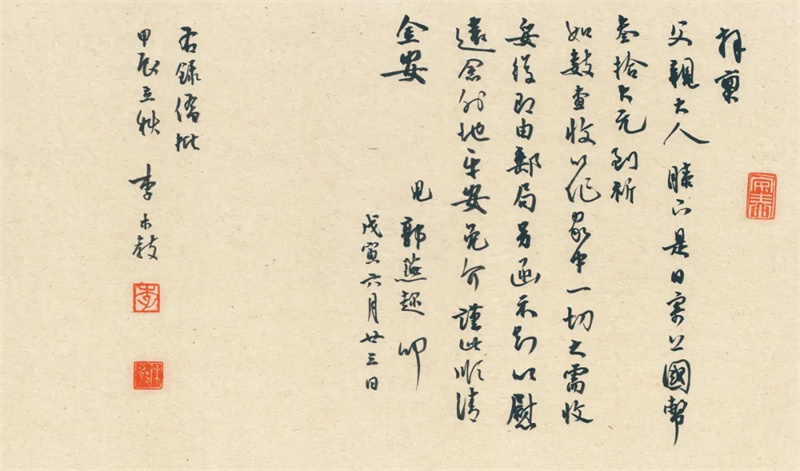 拜禀
父親大人 膝下是日寄上國幣
叁拾大元到祈
如數查收以作家中一切之需收
妥後即由郵局另函示知以慰
遠念外地平安免介謹此順請
金安
兒 郭燕超 叩
戊寅六月廿三日
右錄僑批
甲辰立秋 李木教